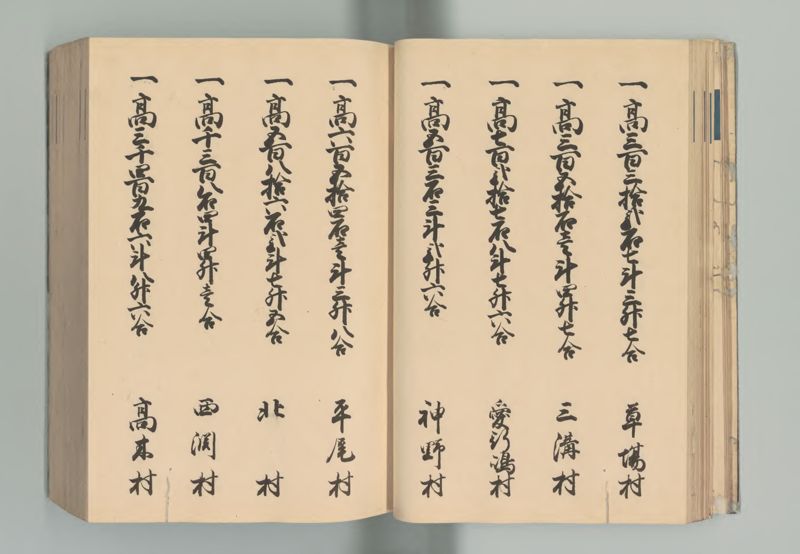 一高三百三拾弐石七斗三升七合 草場村
一高三百五拾石壱斗四升七合 三溝村
一高七百弐拾七石八斗七升六合 愛行嶋村
一高五百三石三斗弐升六合 神野村
一高六百五拾四石壱斗三升八合 平尾村
一高五百八拾六石弐斗七升五合 北村
一高千三百八石四斗四升壱合 西渕村
一高三千四百五石六斗八升六合 高木村